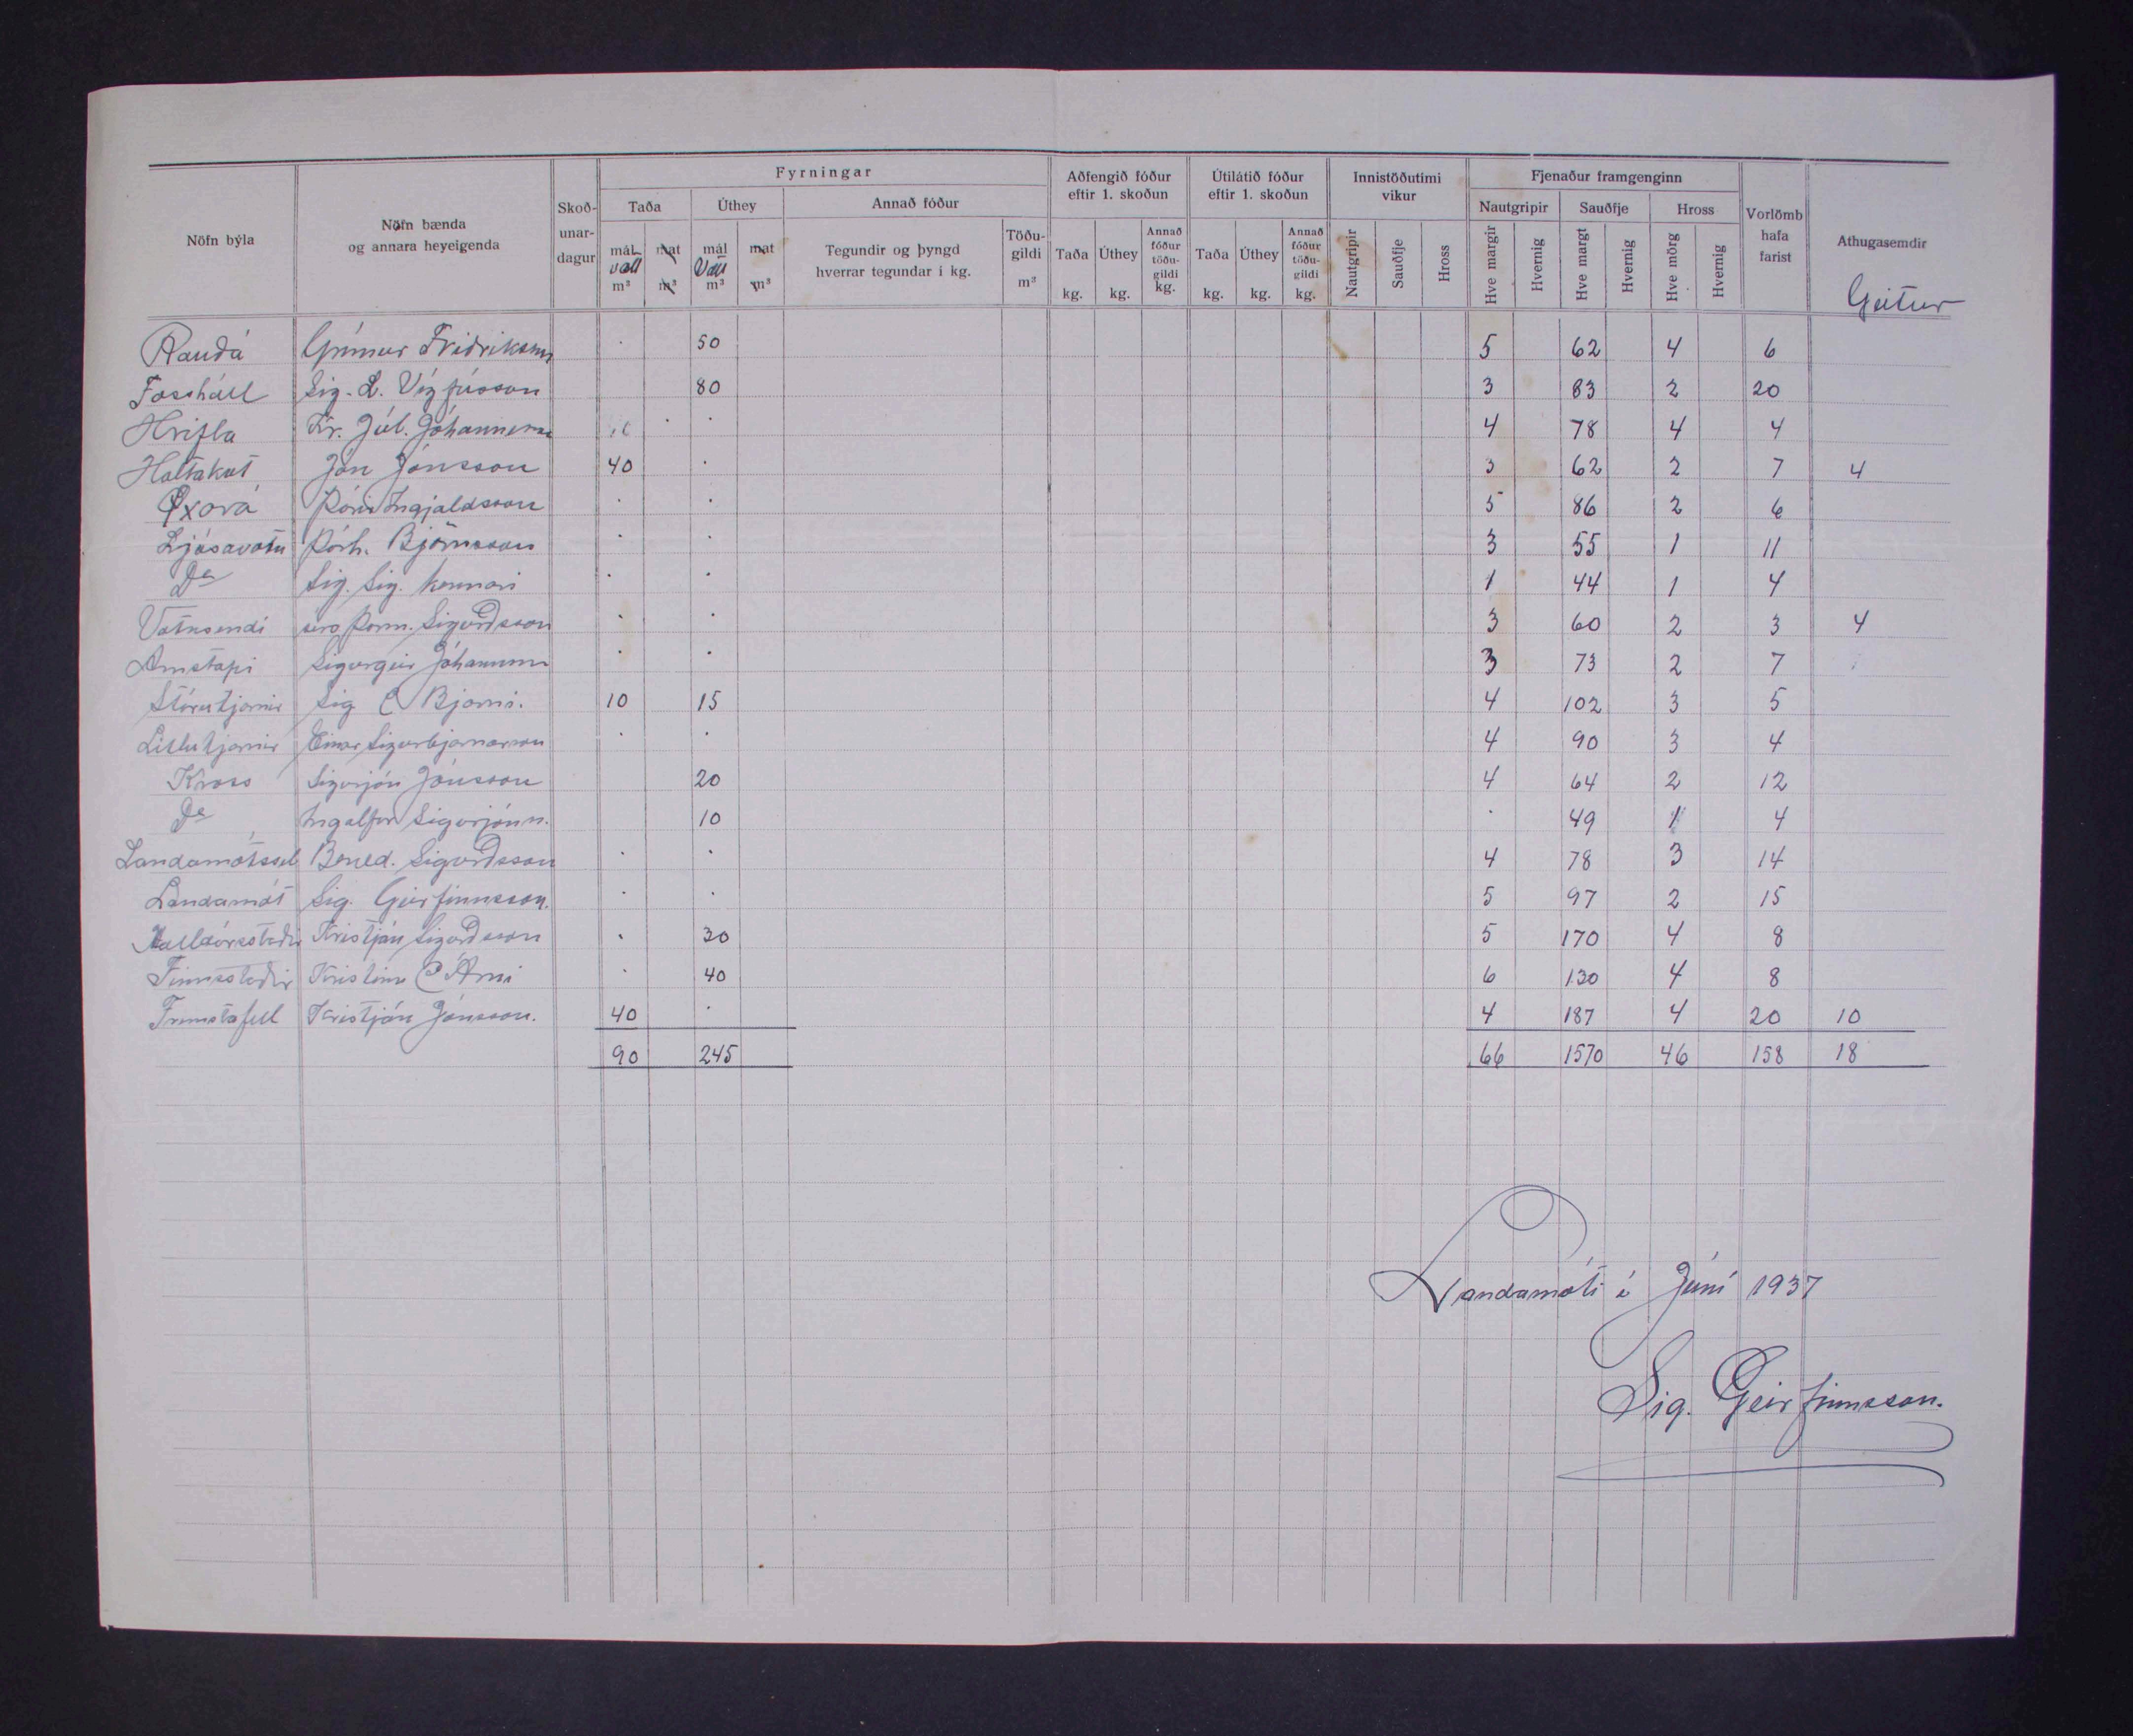 Nöfn býla
Nöfn bænda og annara heyeigenda
Skoð-unar-dagur
Fyrningar
Taða
Úthey
Annað fóður
mál vall m³
mat m³
mál Vall m³
mat m³
Tegundir og þyngd hverrar tegundar í kg.
Töðu-gildi m³
Aðfengið fóður eftir 1. skoðun
Taða kg.
Úthey kg.
Annað fóður töðu-gildi kg.
Útilátið fóður eftir 1. skoðun
Taða kg.
Úthey kg.
Annað fóður töðu-gildi kg.
Innistöðutimi vikur
Nautgripir
Sauðfje
Hross
Fjenaður framgenginn
Nautgripir
Sauðfje
Hross
Hve margir
Hvernig
Hve margt
Hvernig
Hve mörg
Hvernig
Vorlömb hafa farist
Athugasemdir
Geitur
Rauðá Grímur Friðriksson 50 5 62 4 6
Fosshóll Sig. L. Vigfússon 80 3 83 2 20
Hrifla Kr. Júl. Jóhannesson 4 78 4 4
Holtakot Jón Jónsson 40 3 62 2 7 4
Öxará Þórir Ingjaldsson 5 86 2 6
Ljósavatn Þórh. Björnsson 3 55 1 11
Do Sig. Sig. kennari 1 44 1 4
Vatnsendi sera Þorm. Sigurðsson 3 60 2 3 4
Arnstapi Sigurgeir Jóhannsson 3 73 2 7
Stórutjarnir Sig & Bjarni. 10 15 4 102 3 5
Litlutjarnir Einar Sigurbjarnarson 4 90 3 4
Kross Sigurjón Jónsson 20 4 64 2 12
Do Ingolfur Sigurjónss. 10 49 1 4
Landamótssel Bened. Sigurðsson 4 78 3 14
Landamót Sig. Geirfinnsson. 5 97 2 15
Halldórsstaðir Kristján Sigurðsson 30 5 170 4 8
Finnsstaðir Kristinn & Árni 40 6 130 4 8
Fremstafell Kristján Jónsson. 40 4 187 4 20 10
90 245 66 1570 46 158 18
Landamóti í Júní 1937
Sig. Geirfinnsson.